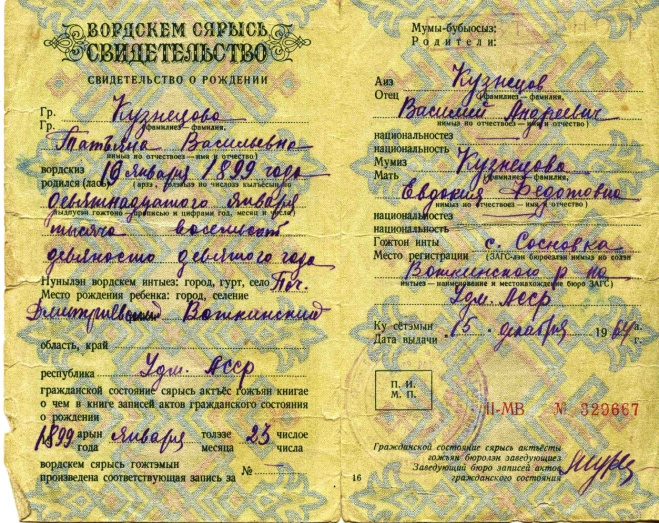 ВОРДСКЕМ СЯРЫСЬ
СВИДЕТЕЛЬСТВО
СВИДЕТЕЛЬСТВО О РОЖДЕНИИ
Гр. Кузнецова
Гр. (фамилиез — фамилия,
Татьяна Васильевна
нимыз но отчествоез — имя и отчество)
вордскиз 19 января 1899 года
родился (лась)
девятнадцатого января
гожтэмын прописью и цифрами год, месяц и число)
тысяча восемьсот
девяносто девятого года
Нунылэн вордскем интыез: город, гурт, село Поч.
Место рождения ребенка: город, селение
Дмитриевский Воткинский
область, край
республика Удм. АССР
гражданской состояние сярысь актъёс гожъян книгае
о чем в книге записей актов гражданского состояния
о рождении
1899 арын января толэзе 23 числое
года месяца числа
вордскем сярысь гожтэмын
произведена соответствующая запись за №
Мумы-бубыосыз:
Родители:
Аиз Кузнецов
Отец (фамилиез — фамилия,
Василий Андреевич
нимыз но отчествоез — имя и отчество)
национальностез
национальность
Мумиз Кузнецова
Мать (фамилиез — фамилия,
Евдокия Федотовна
нимыз но отчествоез — имя и отчество)
национальностез
национальность
Гожтон инты с. Сосновка
Место регистрации (ЗАГС-лэн бюроезлэн нимыз но солэн
Воткинского р-на
интыез — наименование и местонахождение бюро ЗАГС)
Удм. АССР
Ку сётэмын 15 декабря 1964 а.
Дата выдачи г.
П. И.
М. П.
II-МВ № 329667
Гражданской состояние сярысь актъёсты
гожъян бюролэн заведующиез
Заведующий бюро записей актов
гражданского состояния
16